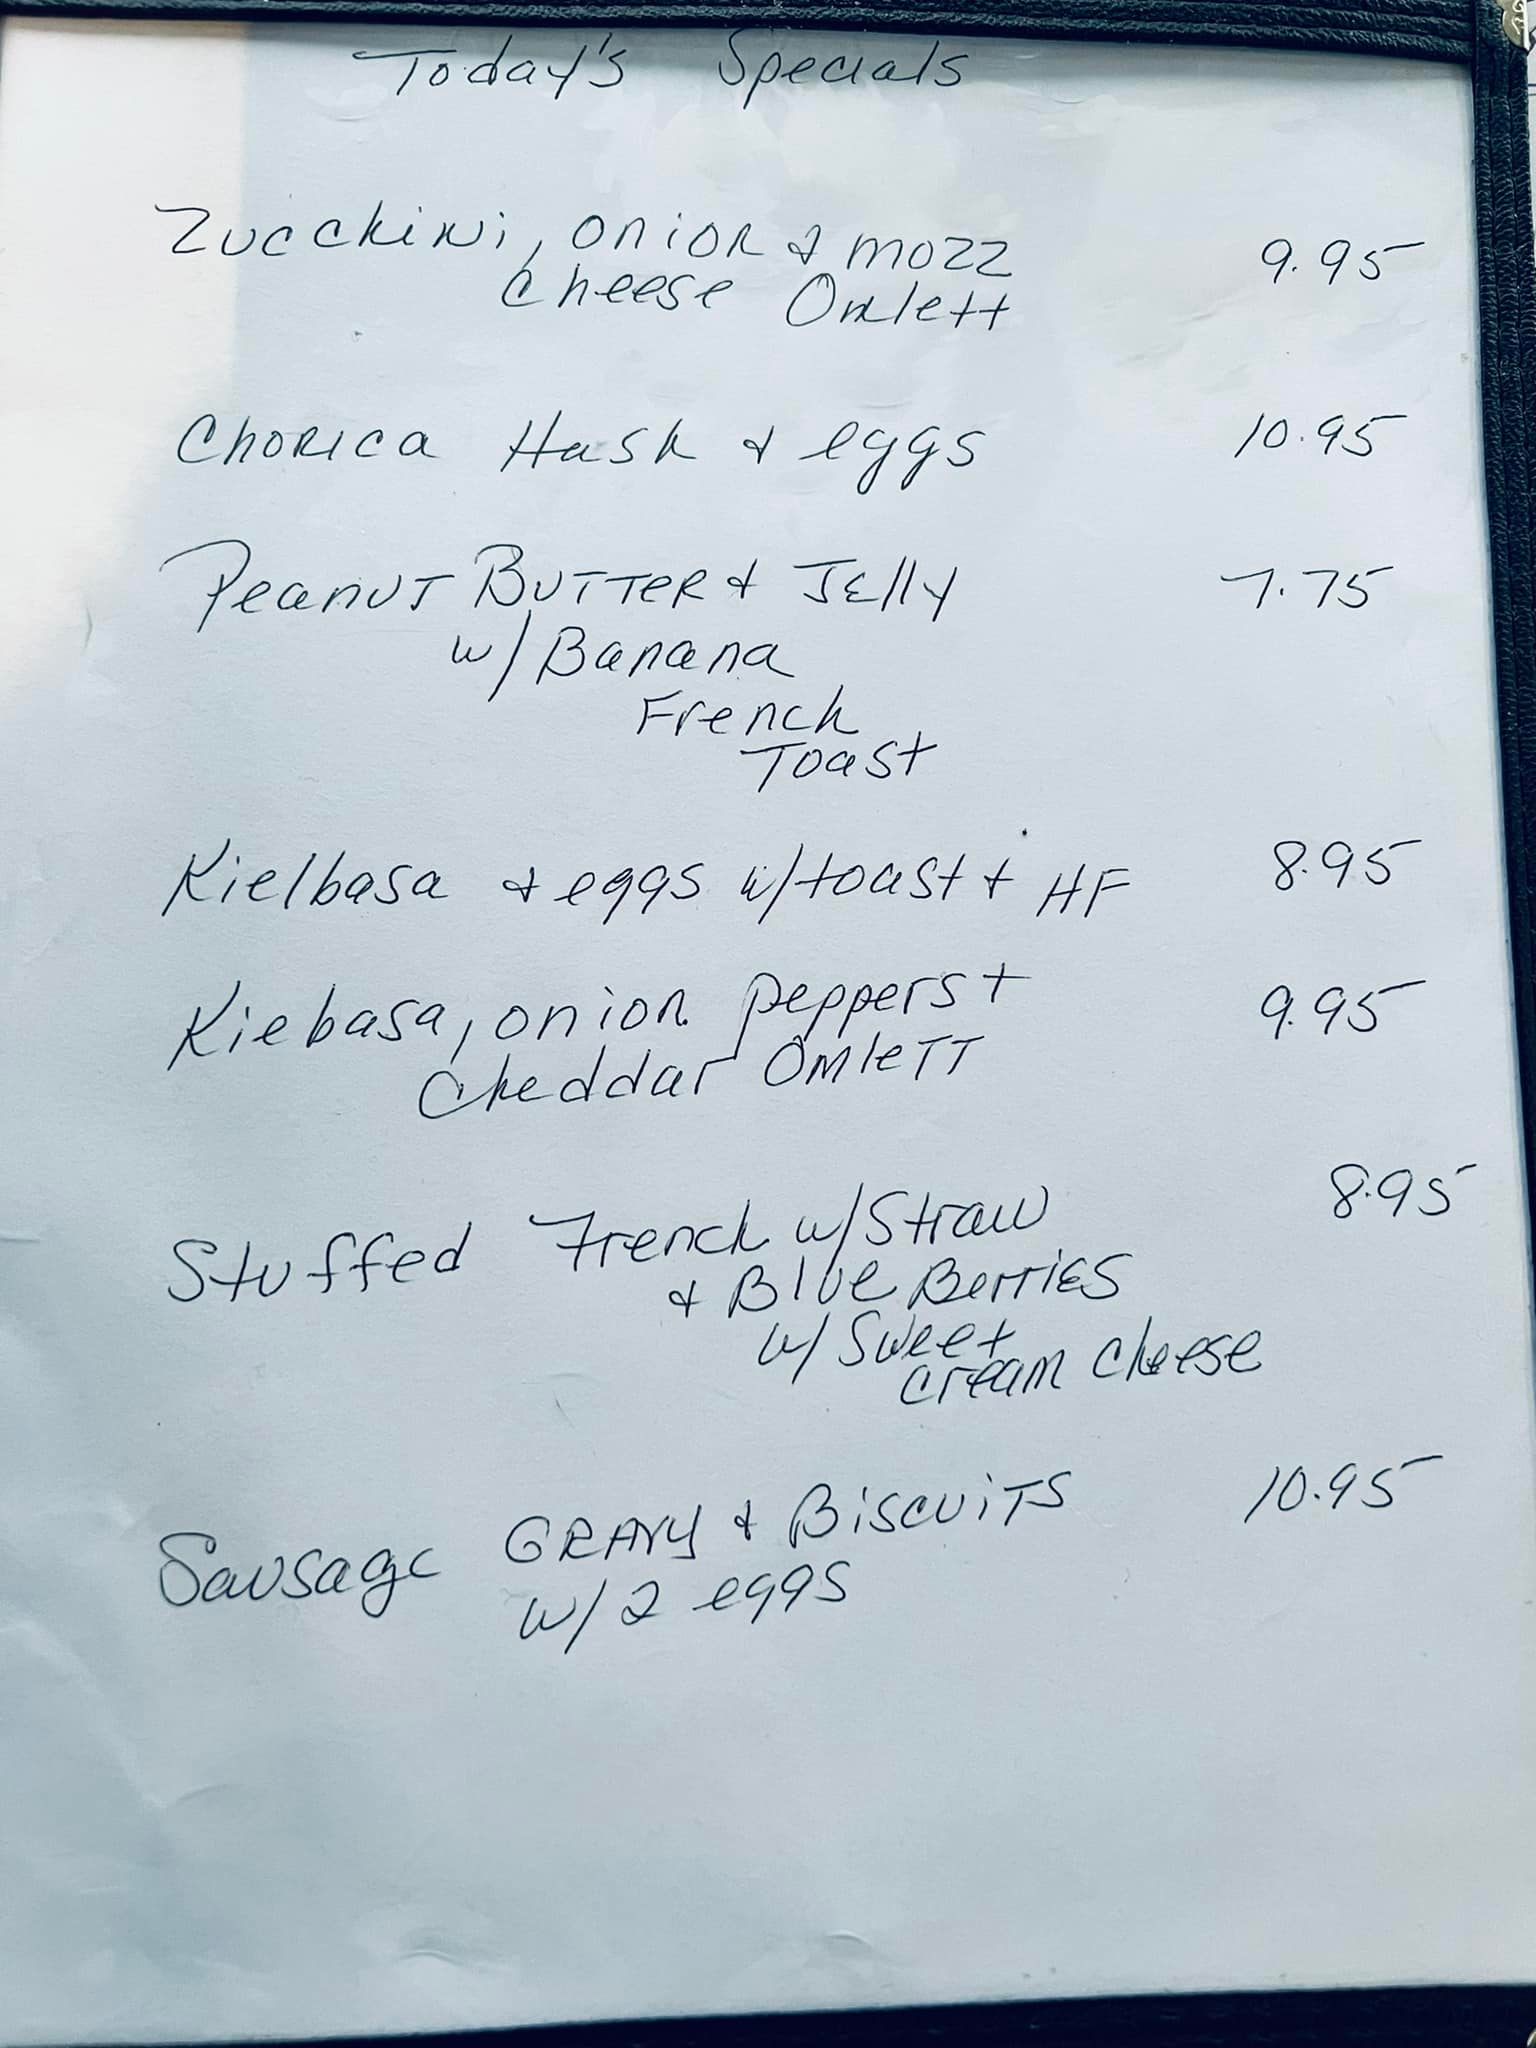 Today's Specials
Zucchini, onion & mozz 9.95
cheese Omlett
Chorica Hash & eggs 10.95
Peanut Butter & Jelly 7.75
w/ Banana
French
Toast
Kielbasa & eggs w/ toast + HF 8.95
Kiebasa, onion peppers + 9.95
Cheddar Omlett
Stuffed French w/ Straw 8.95
& Blue Berries
w/ Sweet
cream cheese
Sausage Gravy & Biscuits 10.95
w/ 2 eggs